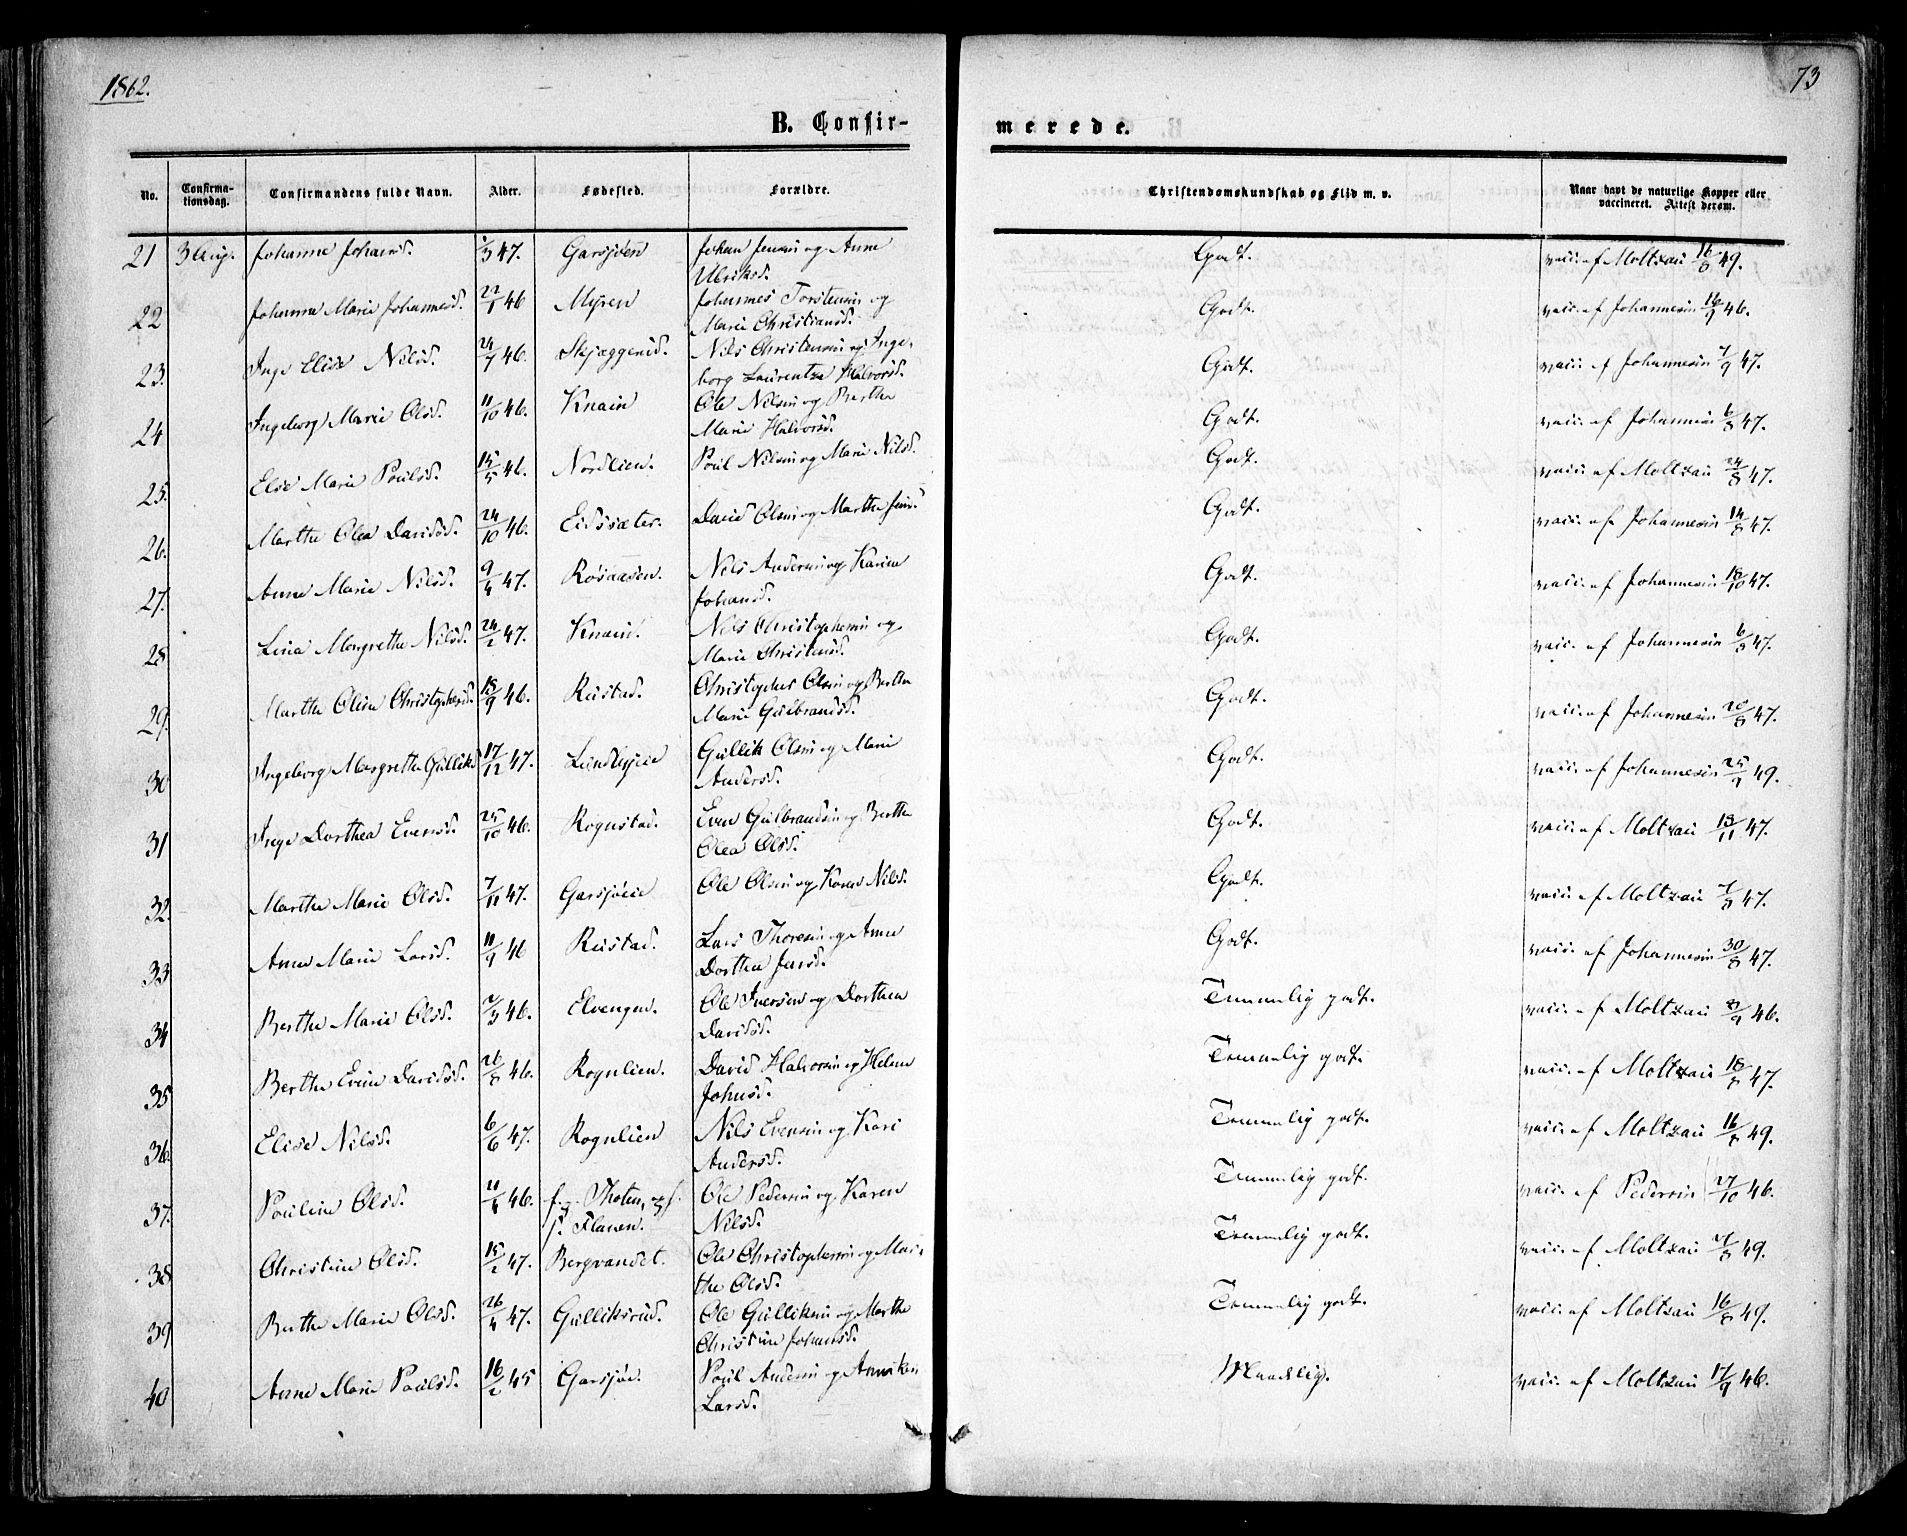 1862.
73
B. Confir-
merede.
No. Confirma-tionsdag. Confirmandens fulde Navn. Alder. Fødested. Forældre. Christendomskundskab og Flid m. v. Naar havt de naturlige Kopper eller vaccineret. Attest derom.
21 3 Aug. Johanne Johansd. /3 47. Garsjøen Johan Jensen og Anne Godt. vacc. af Moltzau 16/8 49.
Ulriksd.
22 Johanne Marie Johannesd. 22/1 46 Myren Johannes Torstensen og Godt. vacc. af Johannesen 16/9 46.
Marie Christiansd.
23. Inge Elise Nilsd. 24/7 46. Skjæggerud. Nils Christensen og Inge- Godt. vacc. af Johannesen 7/9 47.
borg Laurentze Halvorsd.
24 Ingeborg Marie Olsd. 11/10 46. Knain Ole Nilsen og Berthe Godt. vacc. af Johannesen 6/8 47.
Marie Halvorsd.
25. Else Marie Poulsd. 15/5 46. Nordlien. Poul Nilsen og Marie Nilsd. Godt. vacc. af Moltzau 24/8 47.
26. Marthe Olea Davidsd. 24/10 46. Eidssæter. David Olsen og Marthe Jensd. Godt. vacc. af Johannesen 14/8 47.
27. Anne Marie Nilsd. 9/4 47. Røsaasen. Nils Andersen og Karen Godt. vacc. af Johannesen 18/10 47.
Johansd.
28 Lina Margrethe Nilsd. 24/2 47. Knain. Nils Christophersen og Godt. vacc. af Johannesen 6/8 47.
Marie Christensd.
29. Marthe Oline Christophersd. 18/9 46. Rustad. Christopher Olsen og Berthe Godt. vacc. af Johannesen 20/8 47.
Marie Gulbrandsd.
30 Ingeborg Margrethe Gulliksd 17/12 47. Gullik Olsen og Marie Godt. vacc. af Johannesen 25/9 49.
Andersd.
31 Inge Dorthea Evensd. 25/10 46. Rognstad. Even Gulbrandsen og Berthe Godt. vacc. af Moltzau 18/11 47.
Olea Olsd.
32. Marthe Marie Olsd. 7/11 47. Garsjøeie Ole Olsen og Karen Nilsd. Godt. vacc. af Moltzau 7/8 47.
33 Anne Marie Larsd. 11/9 46 Rustad. Lars Thoresen og Anne Godt. vacc. af Johannesen 30/8 47.
Dorthea Jensd.
34 Berthe Marie Olsd. 2/3 46. Elvengen. Ole Iversen og Dorthea Temmelig godt. vacc. af Moltzau 8/9 46.
Davidsd.
35 Berthe Evine Davidsd. 26/8 46. Rognlien. David Halvorsen og Helene Temmelig godt. vacc. af Moltzau 18/8 47.
Johnsd.
36. Elise Nilsd. 6/6 47. Rognlien Nils Evensen og Kari Temmelig godt. vacc. af Moltzau 16/8 49.
Andersd.
37. Pauline Olsd. 46. f. p. Thoten, og f. Ole Pedersen og Karen Temmelig godt. vacc. af Pedersen 27/10 46.
Nilsd.
38 Christine Olsd. 15/2 47. Bergvandet. Ole Christophersen og Mar- Temmelig godt. vacc. af Moltzau 49.
the Olsd.
39 Berthe Marie Olsd. 26/4 47. Gulliksrud. Ole Gulliksen og Marthe Temmelig godt. vacc. af Moltzau 16/8 49.
Christine Johansd.
40 Anne Marie Poulsd. 16/2 45 Garsjøe. Poul Andersen og Anniken Maadelig. vacc. af Moltzau 17/9 46.
Larsd.